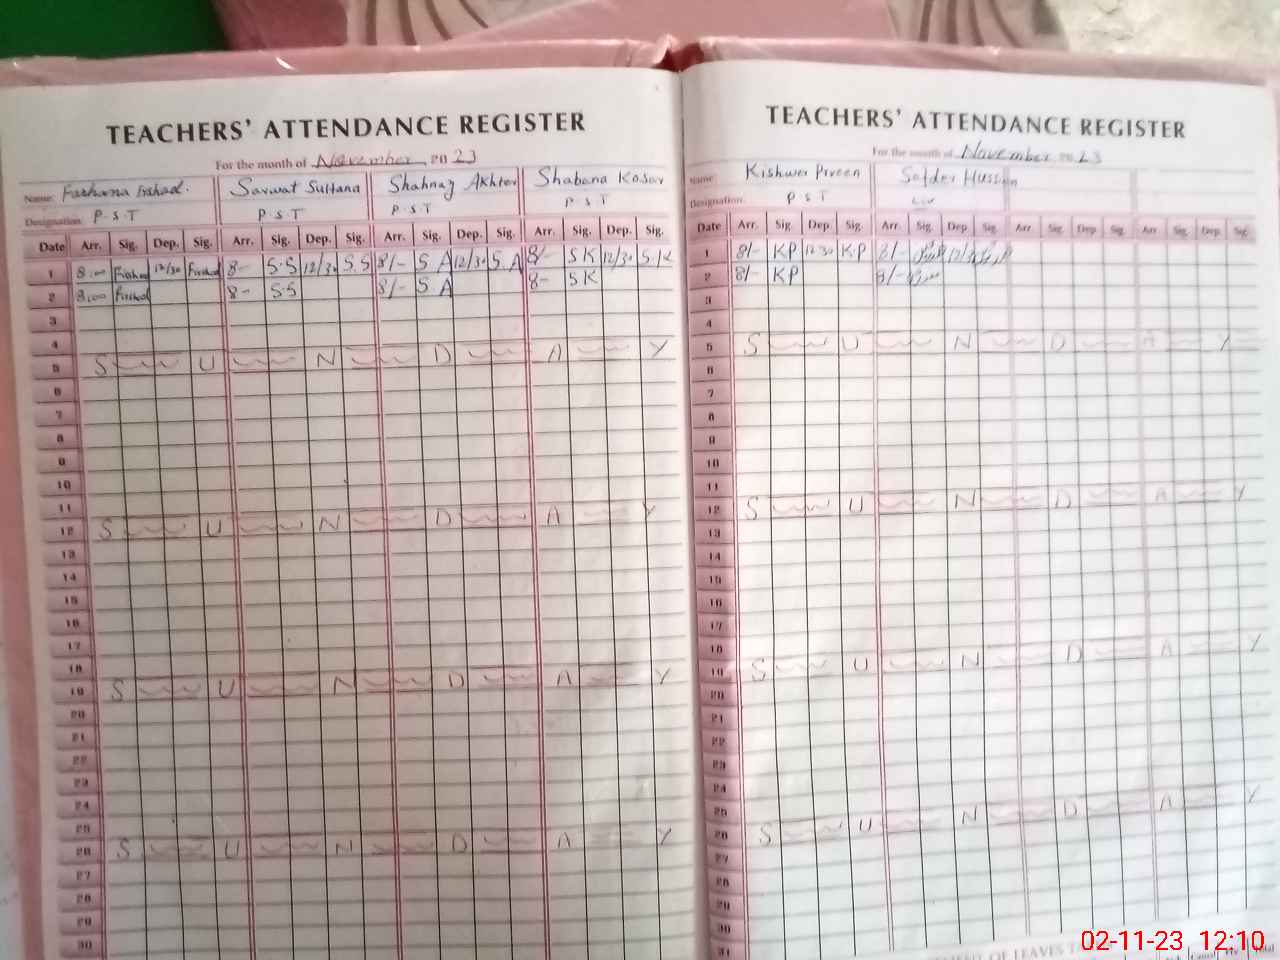 TEACHERS' ATTENDANCE REGISTER
For the month of November 2023
Name: Farhana Irshad. Sarwat Sultana Shahnaz Akhter Shabana Kosar
Designation P.S.T P.S.T P.S.T P.S.T
Date Arr. Sig. Dep. Sig. Arr. Sig. Dep. Sig. Arr. Sig. Dep. Sig. Arr. Sig. Dep. Sig.
1 8:00 12/30 8- S.S 12/30 S.S 8/- S A 12/30 S.A 8/- SK 12/30 S.K
2 8:00 8- S.S 8/- S A 8- SK
3
4
5 S U N D A Y
6
7
8
9
10
11
12 S U N D A Y
13
14
15
16
17
18
19 S U N D A Y
20
21
22
23
24
25
26 S U N D A Y
27
28
29
30
TEACHERS' ATTENDANCE REGISTER
For the month of November 2023
Name: Kishwer Prveen Safder Hussan
Designation P S T
Date Arr. Sig. Dep. Sig. Arr. Sig. Dep. Sig. Arr. Sig. Dep. Sig. Arr. Sig. Dep. Sig.
1 8/- KP 12 30 KP 8/-
2 8/- KP 8/-
3
4
5 S U N D A Y
6
7
8
9
10
11
12 S U N D A Y
13
14
15
16
17
18
19 S U N D A Y
20
21
22
23
24
25
26 S U N D A Y
27
28
29
30
31
OF LEAVES
02-11-23 12:10